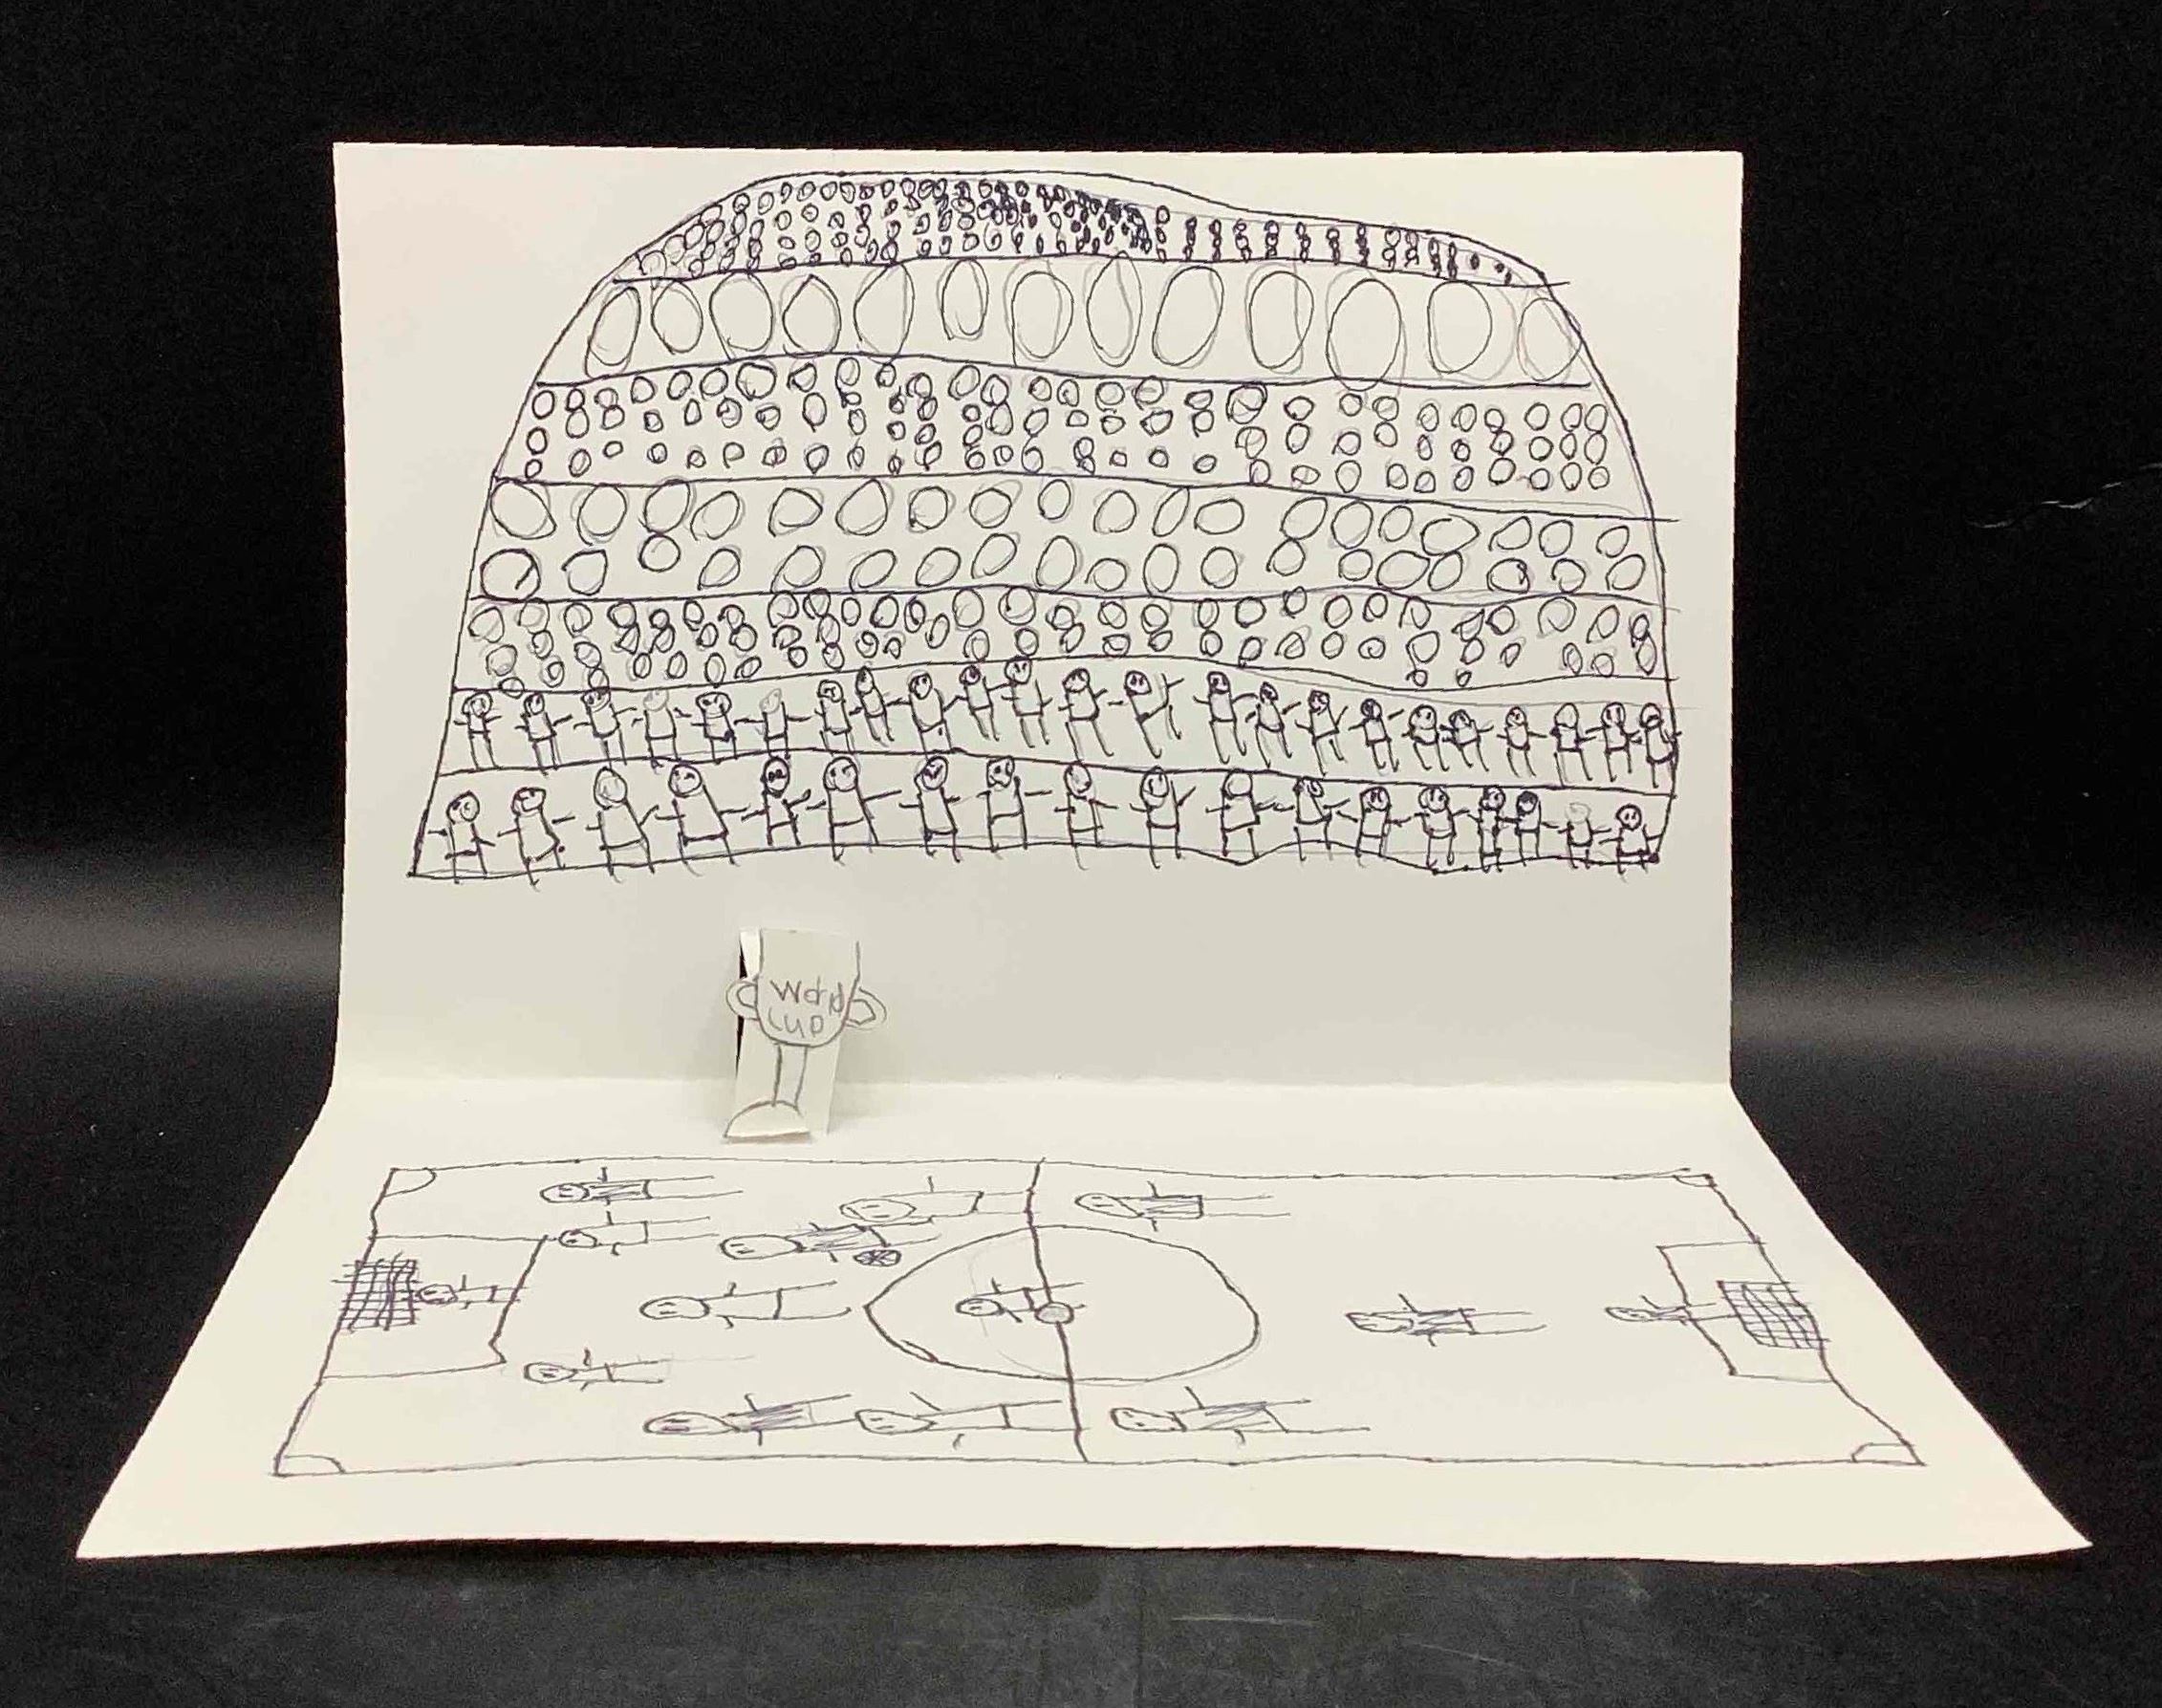 World
cup